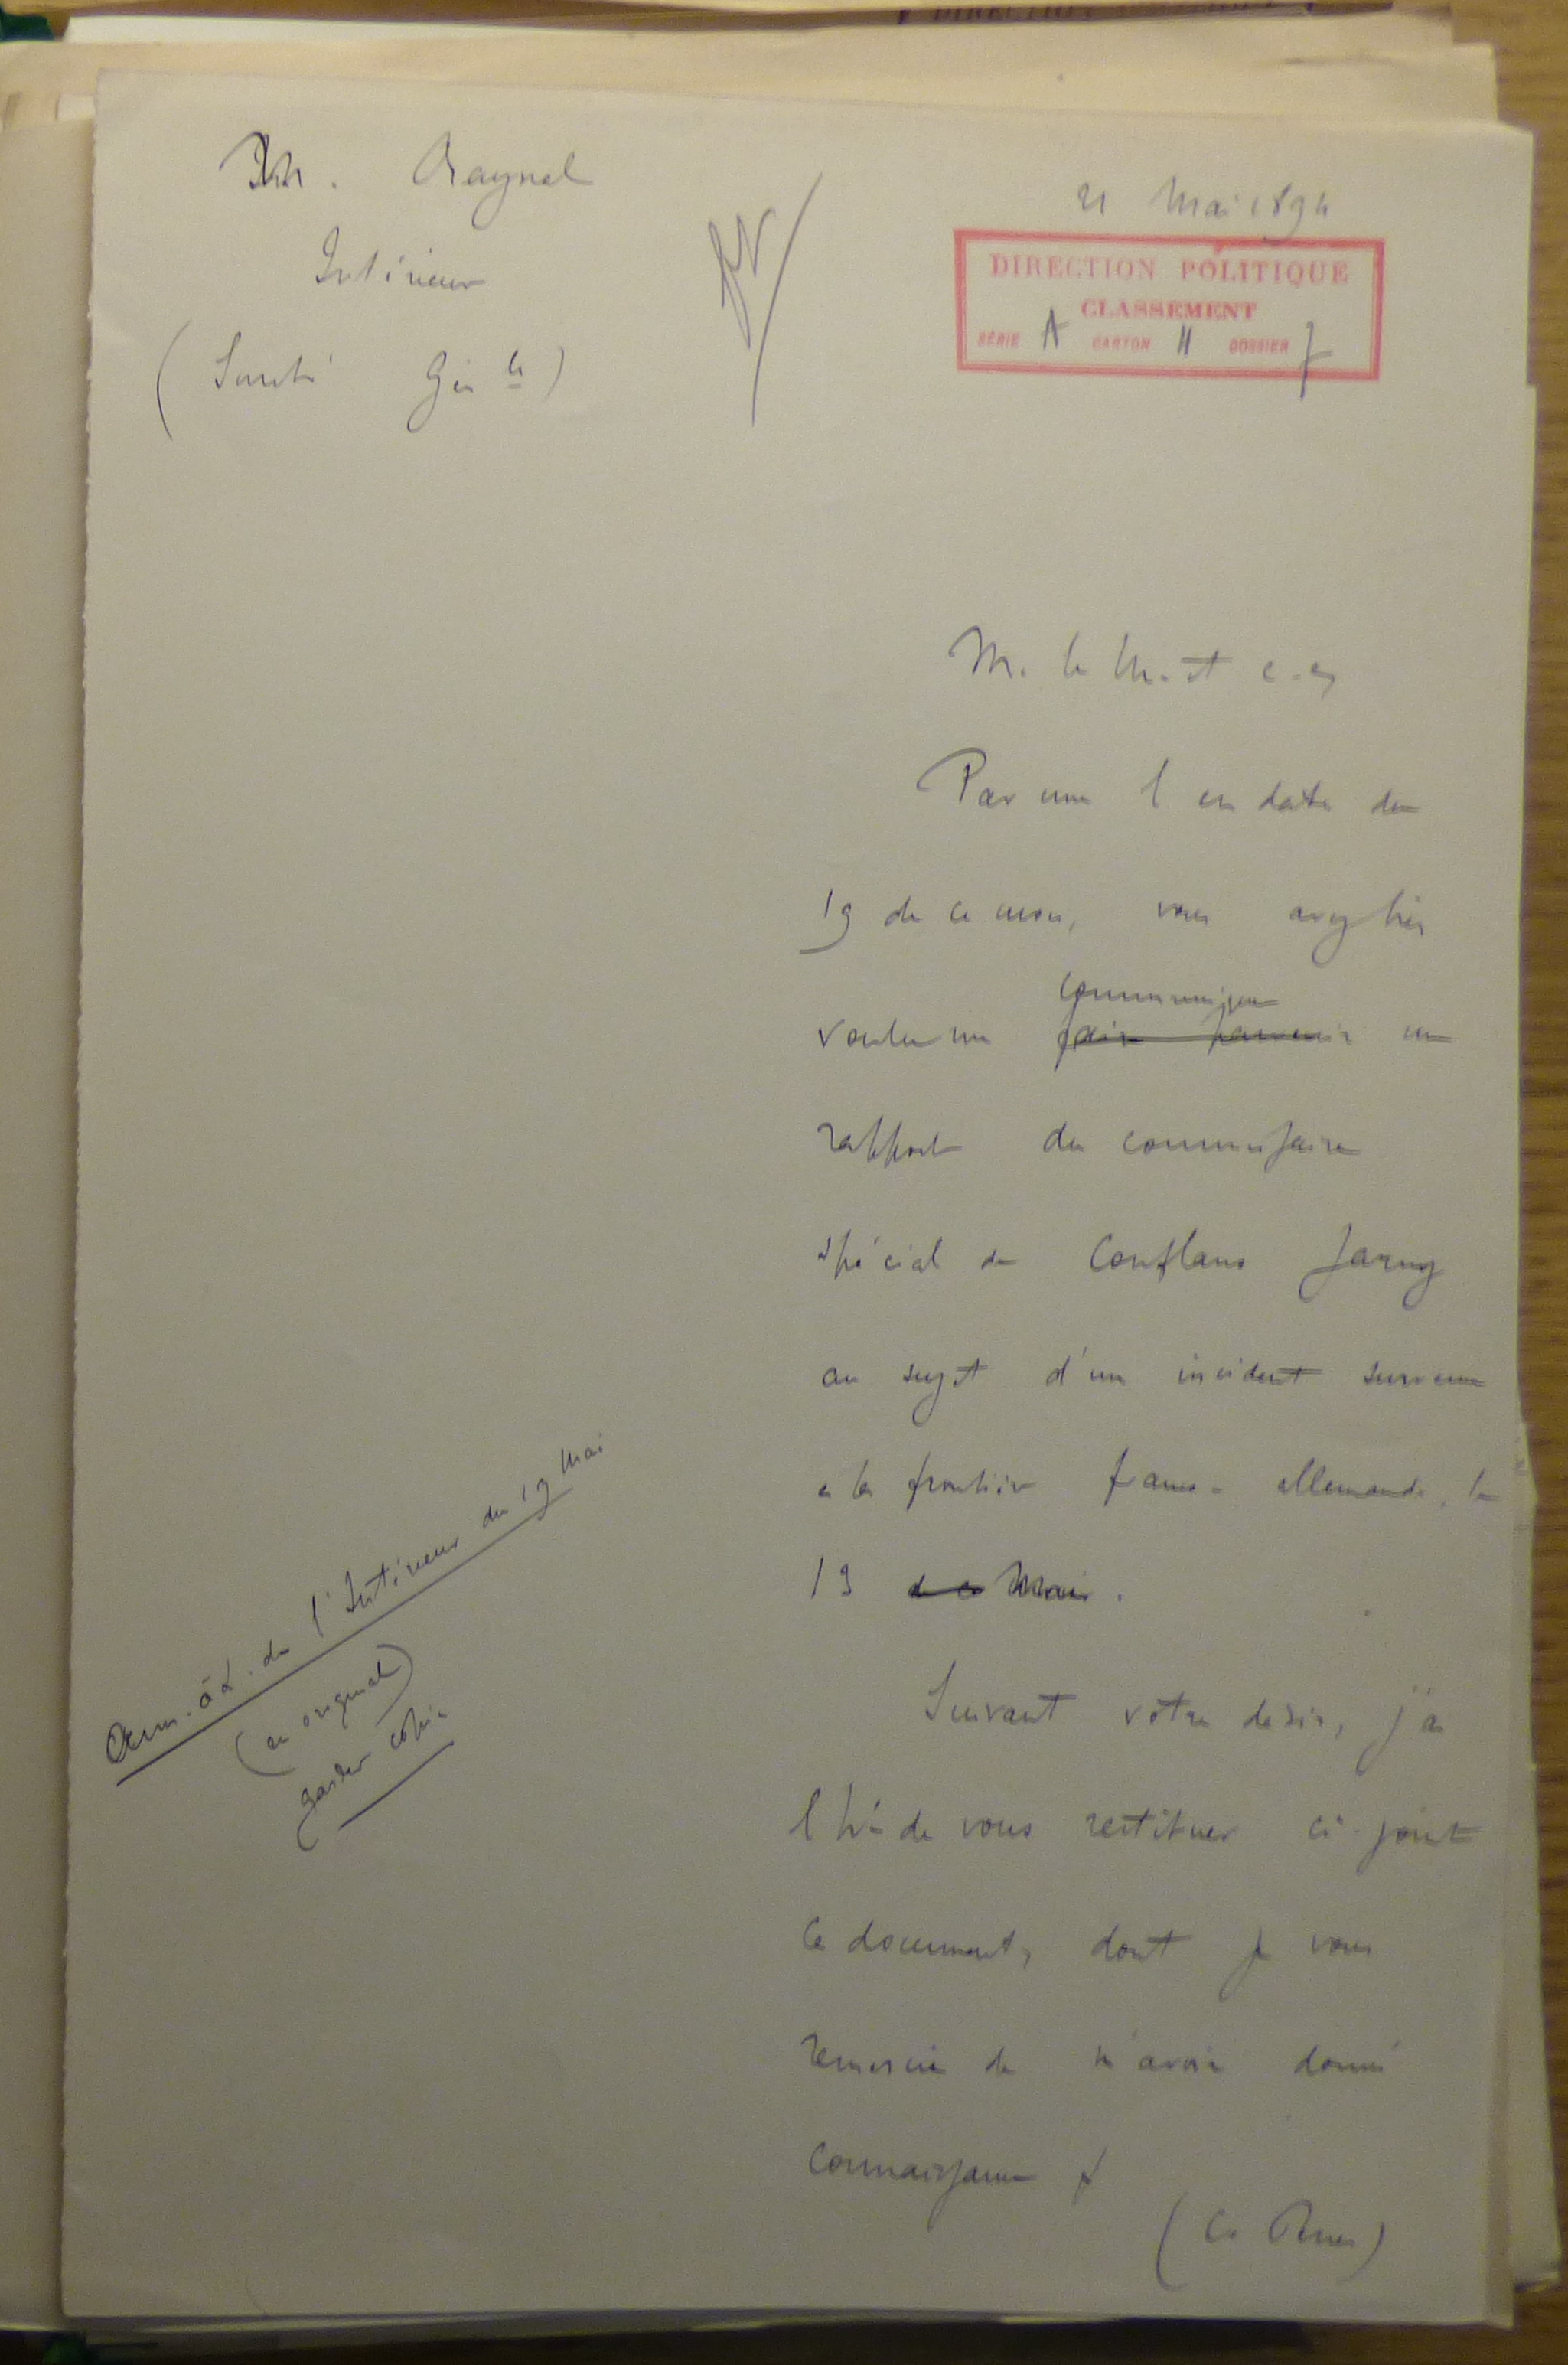 M. Raynal
Intérieur
(Sureté Gén le)
21 Mai 1894
DIRECTION POLITIQUE
CLASSEMENT
SÉRIE A CARTON 11 DOSSIER 7
M. le M. et c.
Par une l en date du
19 de ce mois, vous avez bien
communiquer
voulu me faire parvenir un
rapport du commissaire
spécial de Conflans Jarny
au sujet d'un incident survenu
à la frontière franco-allemande, le
13 de ce Mai.
Suivant votre désir, j'ai
l'hr de vous restituer ci-joint
ce document, dont je vous
remercie de m'avoir donné
connaissance
(C. Perier)
Ann. à L. de l'Intérieur du 19 Mai
(en original)
garder copie